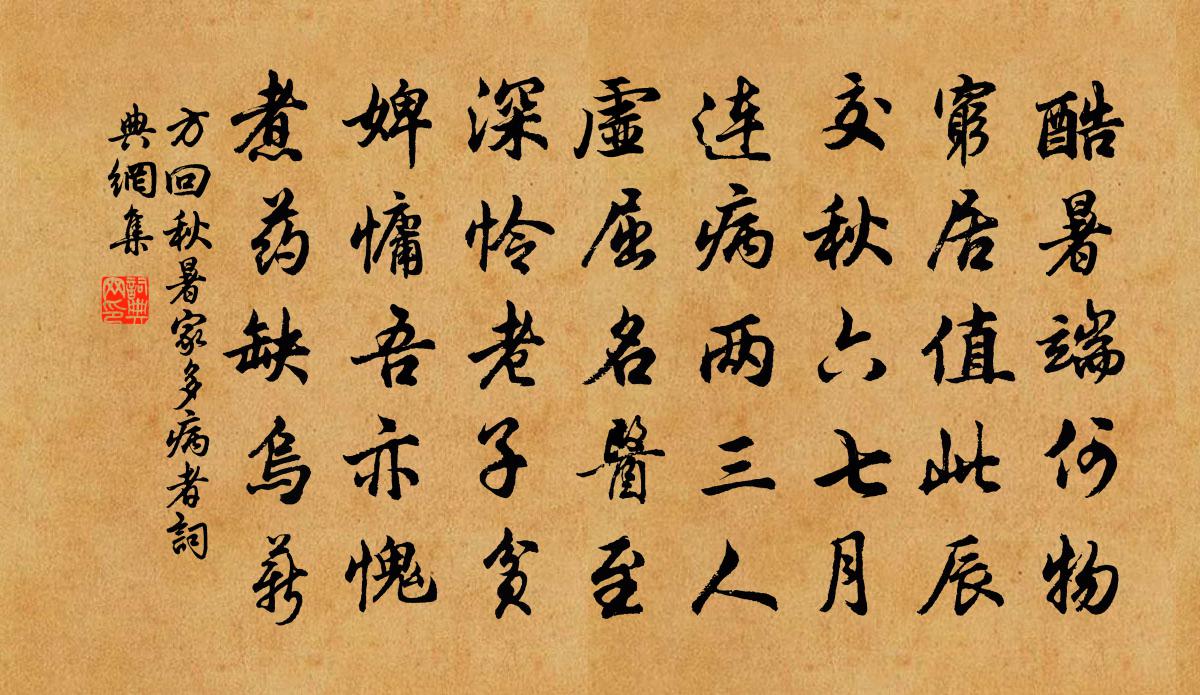 酷暑端何物
窮居值此辰
交秋六七月
连病两三人
虛屈名醫至
深怜老子貧
婢慵吾亦愧
煮药缺烏薪
方回秋暑家多病者詞
典網集
詞典
网印